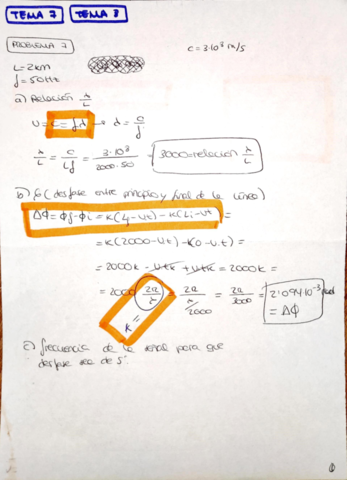 TEMA 7 TEMA 8
PROBLEMA 7
c = 3·10⁸ m/s
L = 2km
f = 50Hz
a) Relación λ/L
v = c = f·λ → λ = c/f
λ/L = c/Lf = 3·10⁸/2000·50 = 3000 = relación λ/L
b) (desfase entre principio y final de la línea)
ΔΦ = Φf - Φi = K(Lf - vt) - K(Li - vt) =
= K(2000 - vt) - K(0 - vt) =
= 2000K - vtK + vtK = 2000K =
= 2000 2π/λ = 2π/λ/2000 = 2π/3000 = 2'094·10⁻³ rad
= ΔΦ
= K
c) frecuencia de la señal para que
desfase sea de 5°.